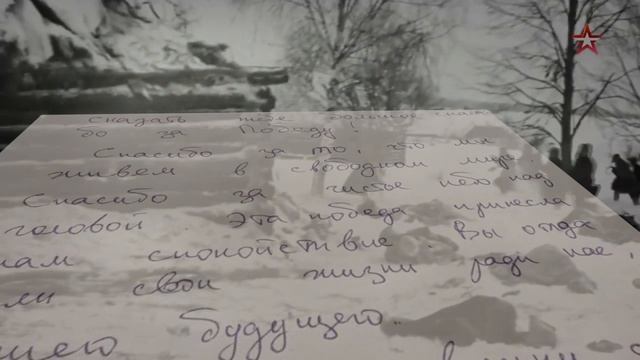 сказать тебе большое спаси-
бо за Победу!
Спасибо за то, что мы
живем в свободном мире.
Спасибо за чистое небо над
головой. Эта победа принесла
нам спокойствие. Вы отда-
ли свои жизни ради нас,
шего будущего.